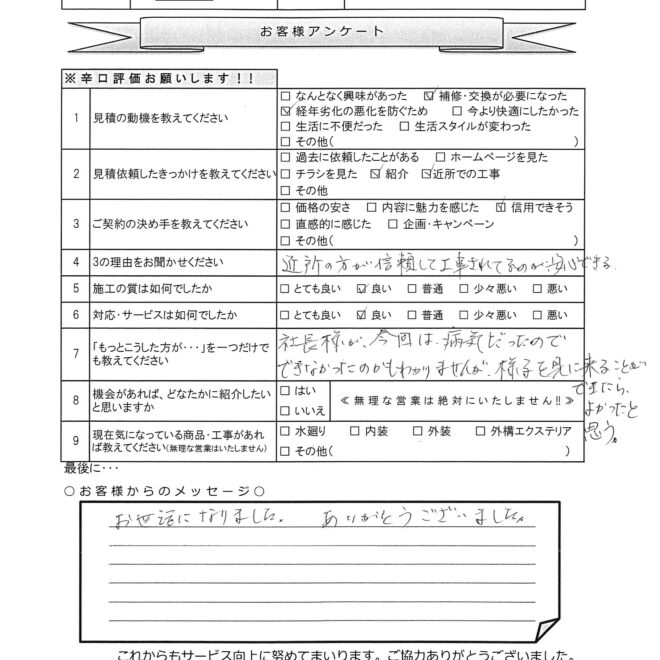 お客様アンケート
※辛口評価お願いします！！
1 見積の動機を教えてください
□ なんとなく興味があった ☑ 補修・交換が必要になった
☑ 経年劣化の悪化を防ぐため □ 今より快適にしたかった
□ 生活に不便だった □ 生活スタイルが変わった
□ その他( )
2 見積依頼したきっかけを教えてください
□ 過去に依頼したことがある □ ホームページを見た
□ チラシを見た ☑ 紹介 ☑ 近所での工事
□ その他
3 ご契約の決め手を教えてください
□ 価格の安さ □ 内容に魅力を感じた ☑ 信用できそう
□ 直感的に感じた □ 企画・キャンペーン
□ その他( )
4 3の理由をお聞かせください
近所の方が信頼して工事されてるのが安心できる。
5 施工の質は如何でしたか
□ とても良い ☑ 良い □ 普通 □ 少々悪い □ 悪い
6 対応・サービスは如何でしたか
□ とても良い ☑ 良い □ 普通 □ 少々悪い □ 悪い
7 「もっとこうした方が・・・」を一つだけでも教えてください
社長様が、今回は、病気だったので
できなかったのかもわかりませんが、様子を見に来ることが
できたら、
よかったと
思う。
8 機会があれば、どなたかに紹介したいと思いますか
□ はい
□ いいえ
≪無理な営業は絶対にいたしません!!≫
9 現在気になっている商品・工事があれば教えてください(無理な営業はいたしません)
□ 水廻り □ 内装 □ 外装 □ 外構エクステリア
□ その他( )
最後に・・・
○お客様からのメッセージ○
お世話になりました。 ありがとうございました。
これからもサービス向上に努めてまいります。ご協力ありがとうございました。